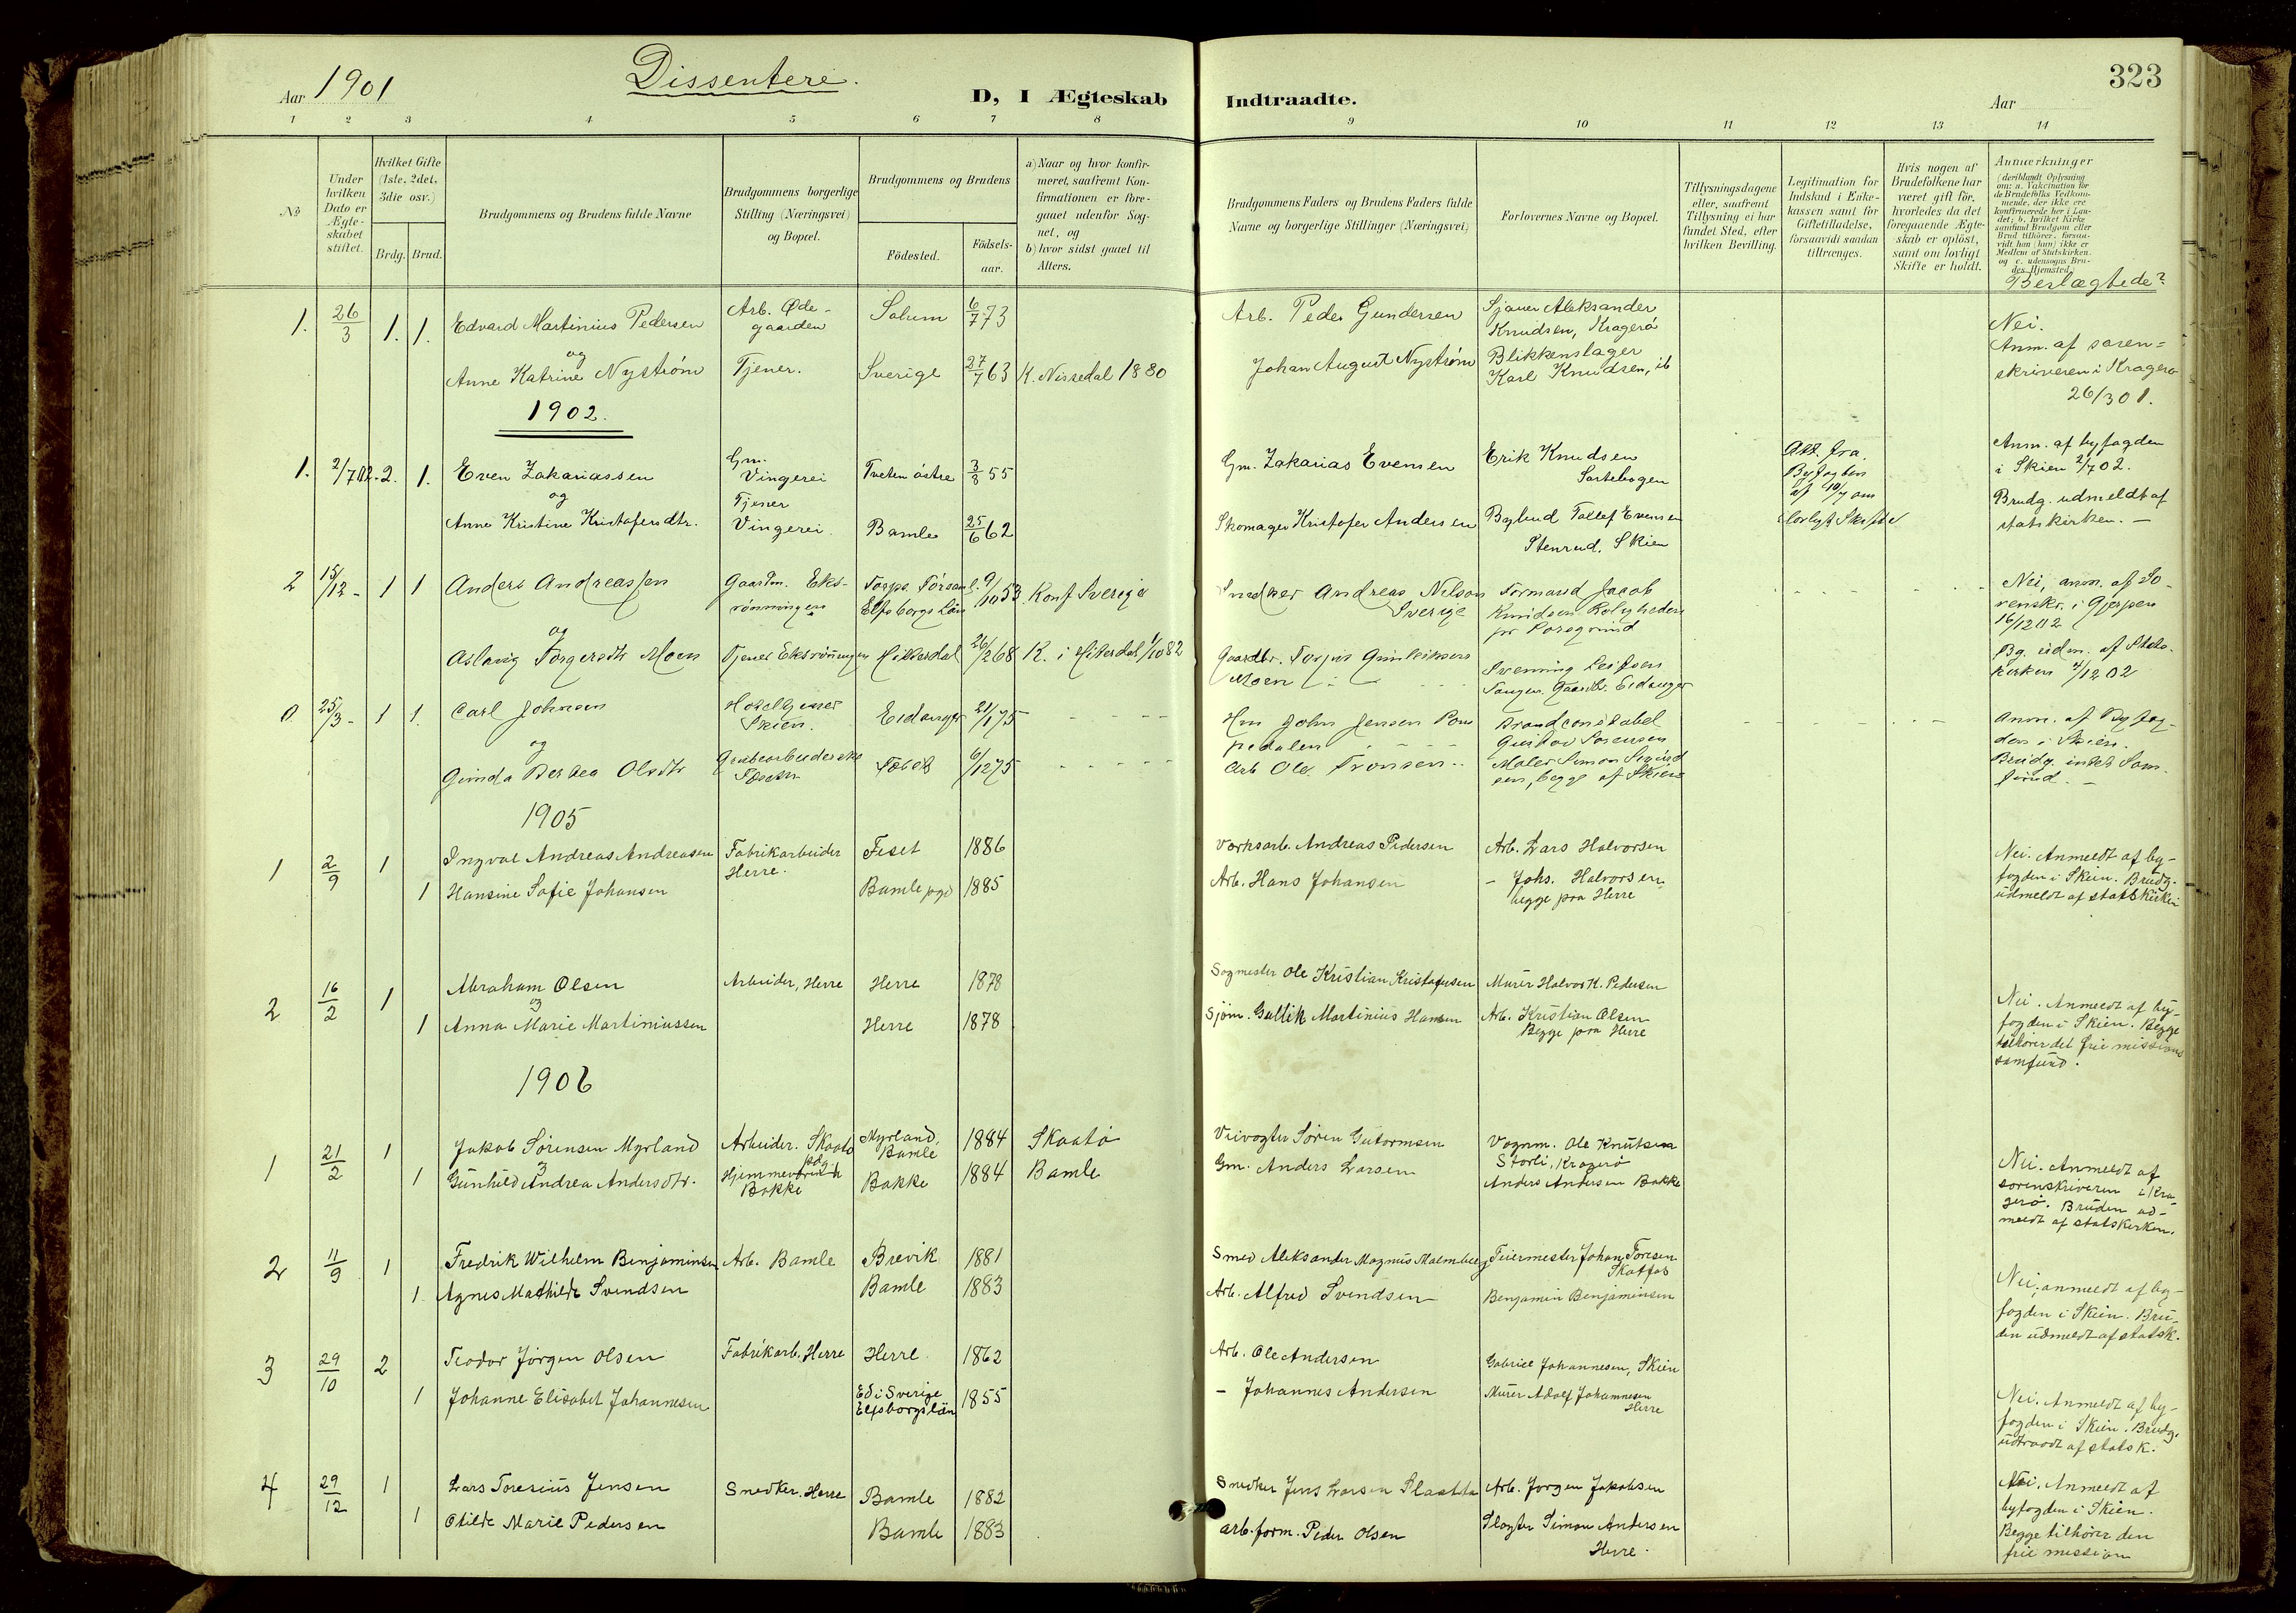 Aar 1901
Dissentere.
D, I Ægteskab Indtraadte.
Aar
323
1 2 3 4 5 6 7 8 9 10 11 12 13 14
No
Under hvilken Dato er Ægteskabet stiftet.
Hvilket Gifte (1ste, 2det, 3die osv.)
Brdg. Brud.
Brudgommens og Brudens fulde Navne
Brudgommens borgerlige Stilling (Næringsvei) og Bopæl.
Brudgommens og Brudens
Fødested.
Fødsels-aar.
a) Naar og hvor konfirmeret, saafremt Konfirmationen er foregaaet udenfor Sognet, og
b) hvor sidst gaaet til Alters.
Brudgommens Faders og Brudens Faders fulde Navne og borgerlige Stillinger (Næringsvei)
Forlovernes Navne og Bopæl.
Tillysningsdagene eller, saafremt Tillysning ei har fundet Sted, efter hvilken Bevilling.
Legitimation for Indskud i Enkekassen samt for Giftetilladelse, forsaavidt saadan tiltrænges.
Hvis nogen af Brudefolkene har været gift før, hvorledes da det foregaaende Ægteskab er opløst, samt om lovligt Skifte er holdt.
Anmærkninger (deriblandt Oplysning om: a. Vakcination for de Brudefolks Vedkommende, der ikke ere konfirmerede her i Landet; b. hvilket Kirkesamfund Brudgom eller Brud tilhører, forsaavidt han (hun) ikke er Medlem af Statskirken, og c. udensogns Brudes Hjemsted.)
Beslægtede?
1. 26/3 1. 1. Edvard Martinius Pedersen Arb. Ødegaarden Solum 6/7 73 Arb. Peder Gundersen Sjauer Aleksander Knudsen, Kragerø Nei.
og
Anne Katrine Nystrøm Tjener. Sverige 27/7 63 K. Nissedal 1880 Johan August Nystrøm Blikkenslager Karl Knudsen, ib Anm. af sorenskriveren i Kragerø 26/3 01.
1902.
1. 2/7 02. 2. 1. Even Zakariassen Gm. Vingerei Tveten østre 3/8 55 Gm. Zakarias Evensen Erik Knudsen Sortebogen Att. fra Byfogden af 10/7 om lovlyst Skifte Anm. af byfogden i Skien 2/7 02.
og
Anne Kristine Kristofersdtr. Tjener Vingerei. Bamle 25/6 62 Skomager Kristofer Andersen Bybud Tollef Evensen Stenrud. Skien Brudg. udmeldt af statskirken. —
2 15/12 - 1 1 Anders Andreassen Gaardm. Eksrønningen Elfsborgs Län 9/10 53 Konf Sverige Snedker Andreas Nilson Sverige Formand Jacob Knudsen Roligheden pr Porsgrund Nei, anm. af Sorenskr. i Gjerpen 16/12 02
og
Aslaug Torgersdtr Moen Tjener Eksrønningen Hitterdal 26/2 68 K. i Hiterdal 1/10 82 Gaardbr. Torger Gunleiksen Moen Svenning Leifsen Tangen. Gaardbr. Eidanger Bg. udm. af Statskirken 4/12 02
0. 25/3 - 1 1. Carl Johnsen Hoteltjener Skien. Eidanger 21/1 75 Hm John Jensen Brandconstabel Gustav Sørensen Anm. af Byfogden i Skien.
og
Ginda Berbea Olsdtr 6/12 75 Arb Ole Tronsen Maler Simon begge af Skien Brudg. intet Samfund. —
1905
1 2/9 1 Ingval Andreas Andreasen Fabrikarbeider Herre. Feset 1886 Verksarb. Andreas Pedersen Arb. Lars Halvorsen Nei. Anmeldt af byfogden i Skien. Brudg. udmeldt af statskirken
1 Hansine Sofie Johansen Bamle pgd 1885 Arb. Hans Johansen — Johs. Halvorsen, begge pra Herre
2 16/2 1 Abraham Olsen Arbeider, Herre Herre 1878 Sagmester Ole Kristian Kristofersen Murer Halvor K. Pedersen
og
1 Anna Marie Martiniussen Herre 1878 Sjøm. Gullik Martinius Hansen Arb. Kristian Olsen Begge pra Herre Nei. Anmeldt af byfogden i Skien. Begge tilhører det frie missionssamfund.
1906
1 21/2 1 Jakob Sørensen Myrland Arbeider. Skaatø Myrland, Bamle 1884 Skaatø Veivogter Søren Gutormsen Vognm. Ole Knutsen Storli, Kragerø
og
1 Gunhild Andrea Andersdtr. Bakke Bakke 1884 Bamle Gm. Anders Larsen Anders Andersen Bakke Nei. Anmeldt af sorenskriveren i Kragerø. Bruden udmeldt af statskirken.
2 11/9 1 Fredrik Wilhelm Benjaminsen Arb. Bamle Brevik 1881 Smed Aleksander Magnus Malmberg Feiermester Johan Toresen Skotfos
1 Agnes Mathilde Svendsen Bamle 1883 Arb. Alfred Svendsen Benjamin Benjaminsen Nei, anmeldt af byfogden i Skien. Bruden udmeldt af statsk.
3 29/10 2 Teodor Jørgen Olsen Fabrikarb. Herre Herre 1862 Arb. Ole Andersen Gabriel Johannesen, Skien
1 Johanne Elisabet Johannesen Ed i Sverige Elfsborgslän 1855 — Johannes Andersen Murer Adolf Johannesen Herre Nei. Anmeldt af byfogden i Skien. Brudg. udtraadt af statsk.
4 29/12 1 Lars Toresius Jensen Snedker. Herre Bamle 1882 Snedker Jens Larsen Arb. Jørgen Jakobsen Nei. Anmeldt af byfogden i Skien.
1 Otilde Marie Pedersen Bamle 1883 arb.form. Peder Olsen Slagter Simon Andersen Herre. Begge tilhører den frie mission